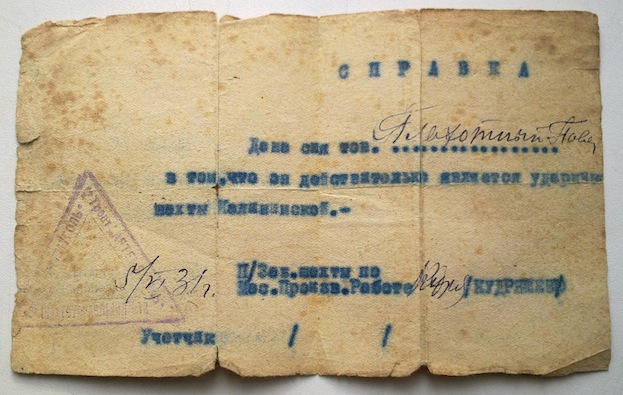 СПРАВКА
Дана сия тов. Плахотный
в том,что он действительно является ударник
шахты Калининской.-
П/Зав.шахты по
Мас.Произв.Работе /КУДРЯВЦЕВ/
5/VI 31г.
Учетчик / /